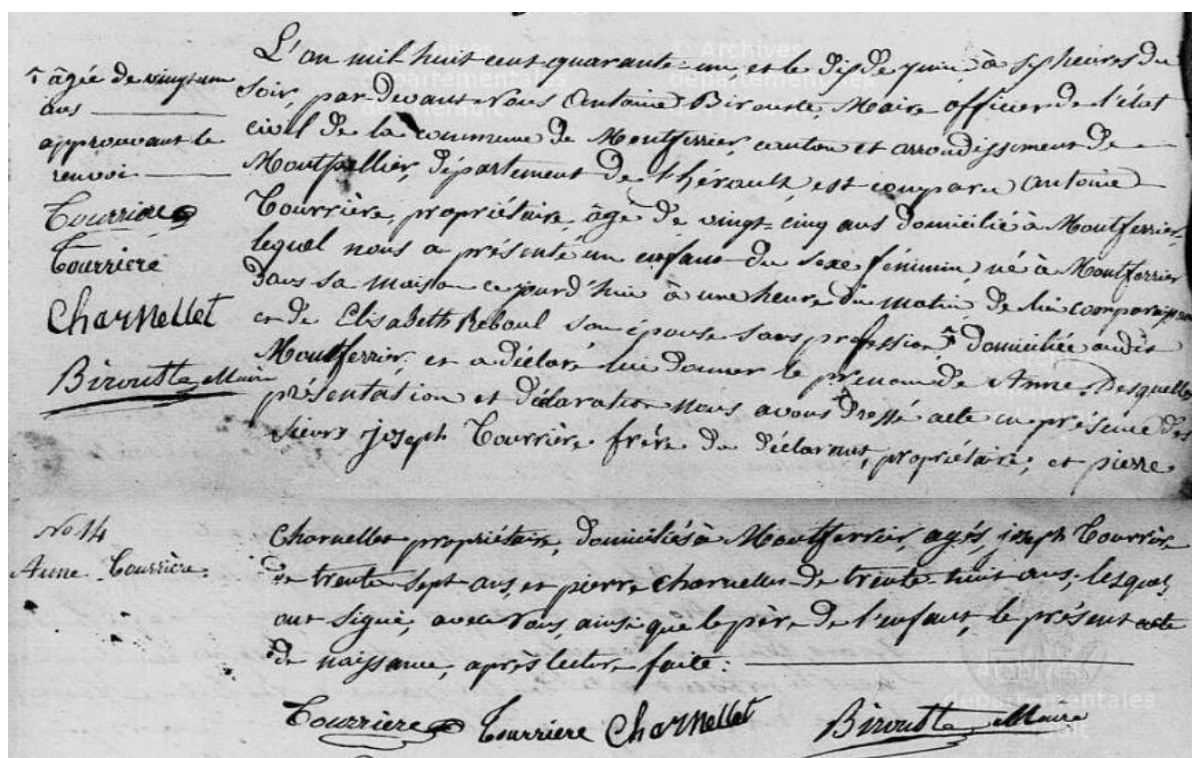 L'an mil huit cent quarante-un, et le dix de juin à sept heures du
soir, par devant Nous Antoine Birouste, Maire officier de l'état
civil de la commune de Montferrier, canton et arrondissement de
Montpellier, département de l'hérault est comparu Antoine
Tourrière, propriétaire, âgé de vingt-cinq ans domicilié à Montferrier,
lequel nous a présenté un enfant du sexe féminin, né à Montferrier
dans sa maison cejourd'hui à une heure du matin de lui comparaissant
et de Elisabeth Reboul son épouse sans profession, domiciliée audit
Montferrier, et a déclaré lui donner le prenom de Anne. Desquelles
présentation et déclaration nous avons dressé acte en présence des
sieurs joseph Tourrière frère du déclarant, propriétaire, et pierre
âgée de vingt un
ans
approuvant le
renvoi
Tourriere
Tourriere
Charnellet
Birouste Maire
No. 14
Anne Tourrière.
Charnellet propriétaire, domiciliés à Montferrier, agés, joseph Tourrière
de trente sept ans, et pierre Charnellet de trente huit ans; lesquels
ont signé, avec Nous, ainsi que le père de l'enfant, le présent acte
de naissance, après lecture faite:
Tourriere Tourriere Charnellet Birouste Maire
Archives
départementales